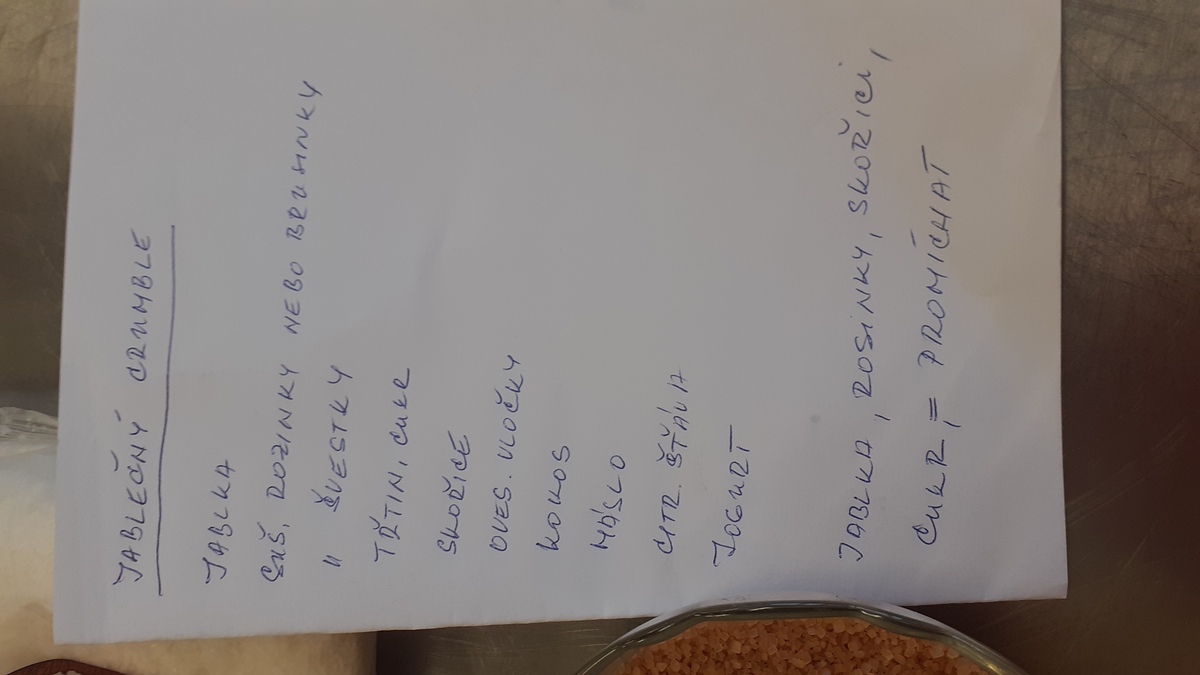 JABLEČNÝ CRUMBLE
JABLKA
SUŠ. ROZINKY NEBO BRUSINKY
" ŠVESTKY
TŘTIN. CUKR
SKOŘICE
OVES. VLOČKY
KOKOS
MÁSLO
CITR. ŠŤÁVA
JOGURT
JABLKA, ROSINKY, SKOŘICI,
CUKR, = PROMÍCHAT